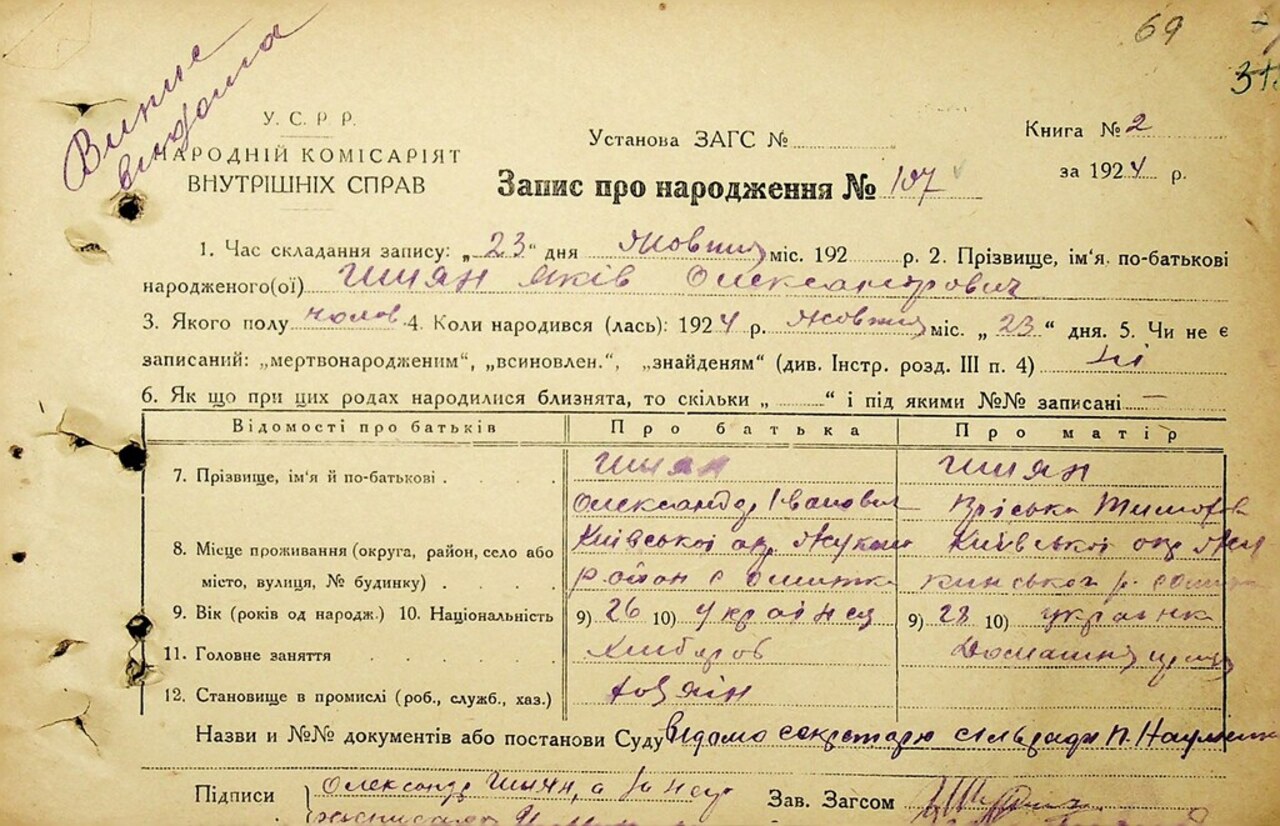 69
Випис
видана
У. С. Р. Р.
НАРОДНІЙ КОМІСАРІЯТ
ВНУТРІШНІХ СПРАВ
Установа ЗАГС №
Книга № 2
за 1924 р.
Запис про народження № 107
1. Час складання запису: „ 23 “ дня Жовтня міс. 192 р. 2. Прізвище, ім'я, по-батькові
народженого(ої) Шиян Яків Олександрович
3. Якого полу чолов. 4. Коли народився (лась): 1924 р. Жовтня міс. „ 23 “ дня. 5. Чи не є
записаний: „мертвонародженим“, „всиновлен.“, „знайденям“ (див. Інстр. розд. III п. 4) Ні
6. Як що при цих родах народилися близнята, то скільки „ “ і під якими №№ записані —
Відомості про батьків Про батька Про матір
7. Прізвище, ім'я й по-батькові Шиян Шиян
Олександр Іванович Пріська Тимофов
8. Місце проживання (округа, район, село або Київської окр. Київської окр.
місто, вулиця, № будинку) район с р.
9. Вік (років од народж.) 10. Національність 9) 26 10) українец 9) 28 10) українка
11. Головне заняття Хлібороб Домашня
12. Становище в промислі (роб., служб., хаз.) хозяїн
Назви и №№ документів або постанови Суду відомо секретарю сільради П. Науменко
Підписи Олександр Шиян, а за нег
Зав. Загсом